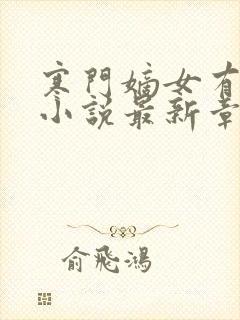 寒門嫡女有
小說最新章
俞飛鴻